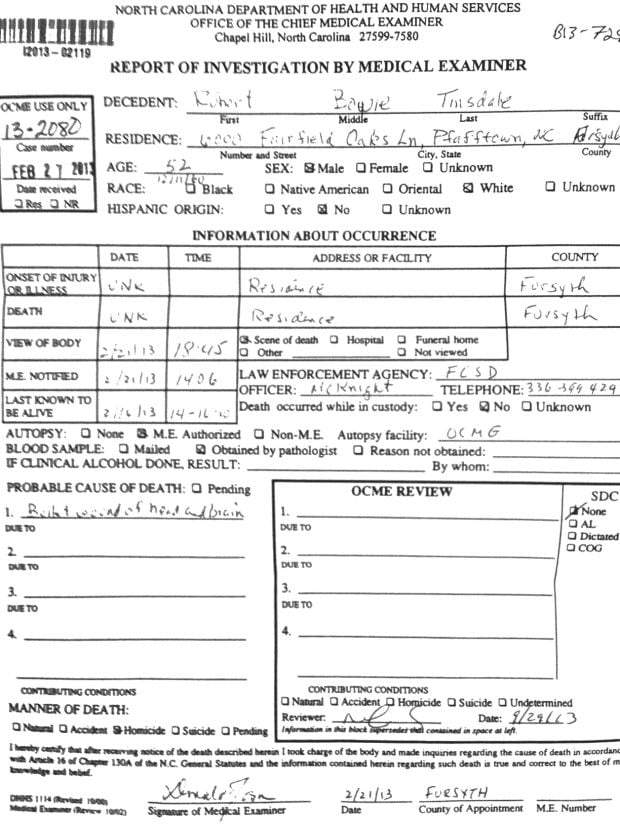 NORTH CAROLINA DEPARTMENT OF HEALTH AND HUMAN SERVICES
OFFICE OF THE CHIEF MEDICAL EXAMINER
Chapel Hill, North Carolina 27599-7580
I2013 - 02119
REPORT OF INVESTIGATION BY MEDICAL EXAMINER
OCME USE ONLY
13-2080
Case number
FEB 27 2013
Date received
Res NR
DECEDENT: Robert Bowie Tinsdale
First Middle Last Suffix
RESIDENCE: Fairfield Oaks Ln, Pfafftown, NC
Number and Street City, State County
AGE: 52 SEX: Male Female Unknown
12/11/60
RACE: Black Native American Oriental White Unknown
HISPANIC ORIGIN: Yes No Unknown
INFORMATION ABOUT OCCURRENCE
DATE TIME ADDRESS OR FACILITY COUNTY
ONSET OF INJURY OR ILLNESS UNK Residence Forsyth
DEATH UNK Residence Forsyth
VIEW OF BODY 2/21/13 18:45 Scene of death Hospital Funeral home
Other Not viewed
M.E. NOTIFIED 2/21/13 1406 LAW ENFORCEMENT AGENCY: FCSD
OFFICER: McKnight TELEPHONE: 336
LAST KNOWN TO BE ALIVE 13 Death occurred while in custody: Yes No Unknown
AUTOPSY: None M.E. Authorized Non-M.E. Autopsy facility: OCME
BLOOD SAMPLE: Mailed Obtained by pathologist Reason not obtained:
IF CLINICAL ALCOHOL DONE, RESULT: By whom:
PROBABLE CAUSE OF DEATH: Pending
1. wound of head and brain
DUE TO
2.
DUE TO
3.
DUE TO
4.
CONTRIBUTING CONDITIONS
MANNER OF DEATH:
Natural Accident Homicide Suicide Pending
OCME REVIEW
1.
DUE TO
2.
DUE TO
3.
DUE TO
4.
CONTRIBUTING CONDITIONS
Natural Accident Homicide Suicide Undetermined
Reviewer: Date:
Information in this block supersedes that contained in space at left.
SDC
None
AL
Dictated
COG
I hereby certify that after receiving notice of the death described herein I took charge of the body and made inquiries regarding the cause of death in accordanc
with Article 16 of Chapter 130A of the N.C. General Statutes and the information contained herein regarding such death is true and correct to the best of m
knowledge and belief.
DHHS 1114 (Revised 10/00)
Medical Examiner (Review 10/02)
2/21/13 FORSYTH
Signature of Medical Examiner Date County of Appointment M.E. Number